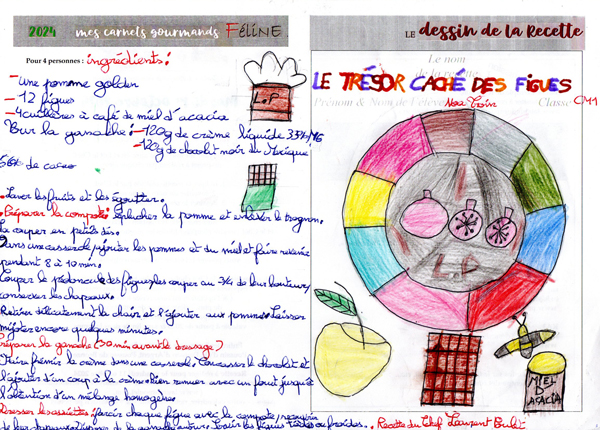 2024 mes carnets gourmands FÉLINE
Pour 4 personnes : ingrédients :
- une pomme golden
- 12 figues
- 4 cuillères à café de miel d'acacia
Pour la ganache : - 120g de crème liquide 35% MG
- 120g de chocolat noir du Mexique
66% de cacao
. Laver les fruits et les égoutter.
. Préparer la compote : éplucher la pomme et enlever le trognon.
la couper en petits dés.
Dans une casserole, ajouter les pommes et du miel et faire
pendant 8 à 10 min.
Couper le pédoncule des figues, les couper au 3/4 de leur hauteur,
conserver les chapeaux.
Retirer délicatement la chair et l'ajouter aux pommes. Laisser
mijoter encore quelques minutes.
Préparer la ganache (30 min avant le dressage)
Faire frémir la crème dans une casserole. Concasser le chocolat et
l'ajouter d'un coup à la crème bien remuer avec un fouet jusqu'à
l'obtention d'un mélange homogène.
Dresser les assiettes : farcir chaque figue avec la compote,
de leur chapeau. Servir les figues tièdes ou froides.
L.P
LE dessin de la Recette
Le nom
de la recette
LE TRÉSOR CACHÉ DES FIGUES
Prénom & Nom de l'élève Classe CM1
L.D
MIEL
D'
ACACIA
. Recette du Chef Laurent